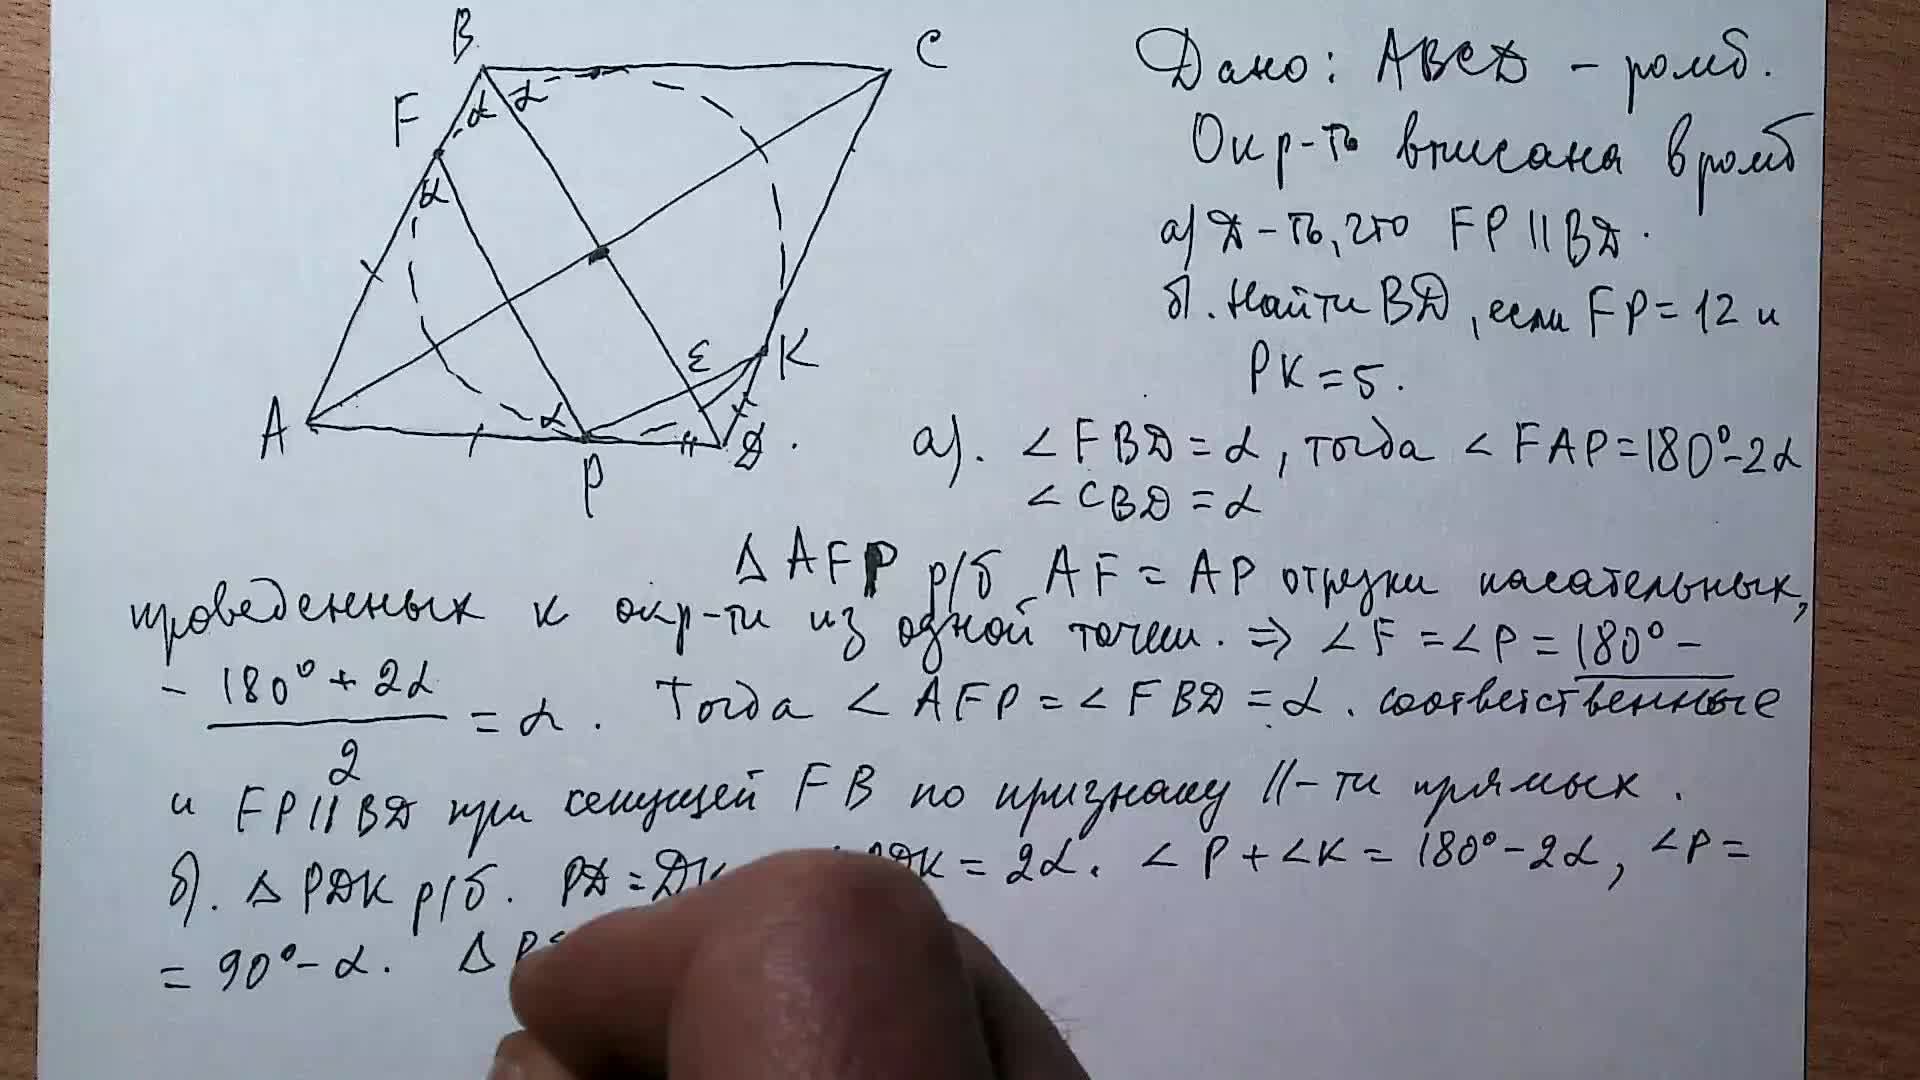 B
C
F
α α
α
ε
K
A
α
P
D
Дано: ABCD – ромб.
Окр-ть вписана в ромб
а) Д-ть, что FP || BD.
б. Найти BD, если FP = 12 и
PK = 5.
а). ∠FBD = α, тогда ∠FAP = 180° - 2α
∠CBD = α
Δ AFP р/б AF = AP отрезки касательных,
проведенных к окр-ти из одной точки. ⇒ ∠F = ∠P = 180° –
– 180° + 2α / 2 = α. Тогда ∠AFP = ∠FBD = α. соответственные
и FP || BD при секущей FB по признаку ||-ти прямых.
б). Δ PDK р/б. PD = DK = 2α. ∠P + ∠K = 180° - 2α, ∠P =
= 90° - α. Δ